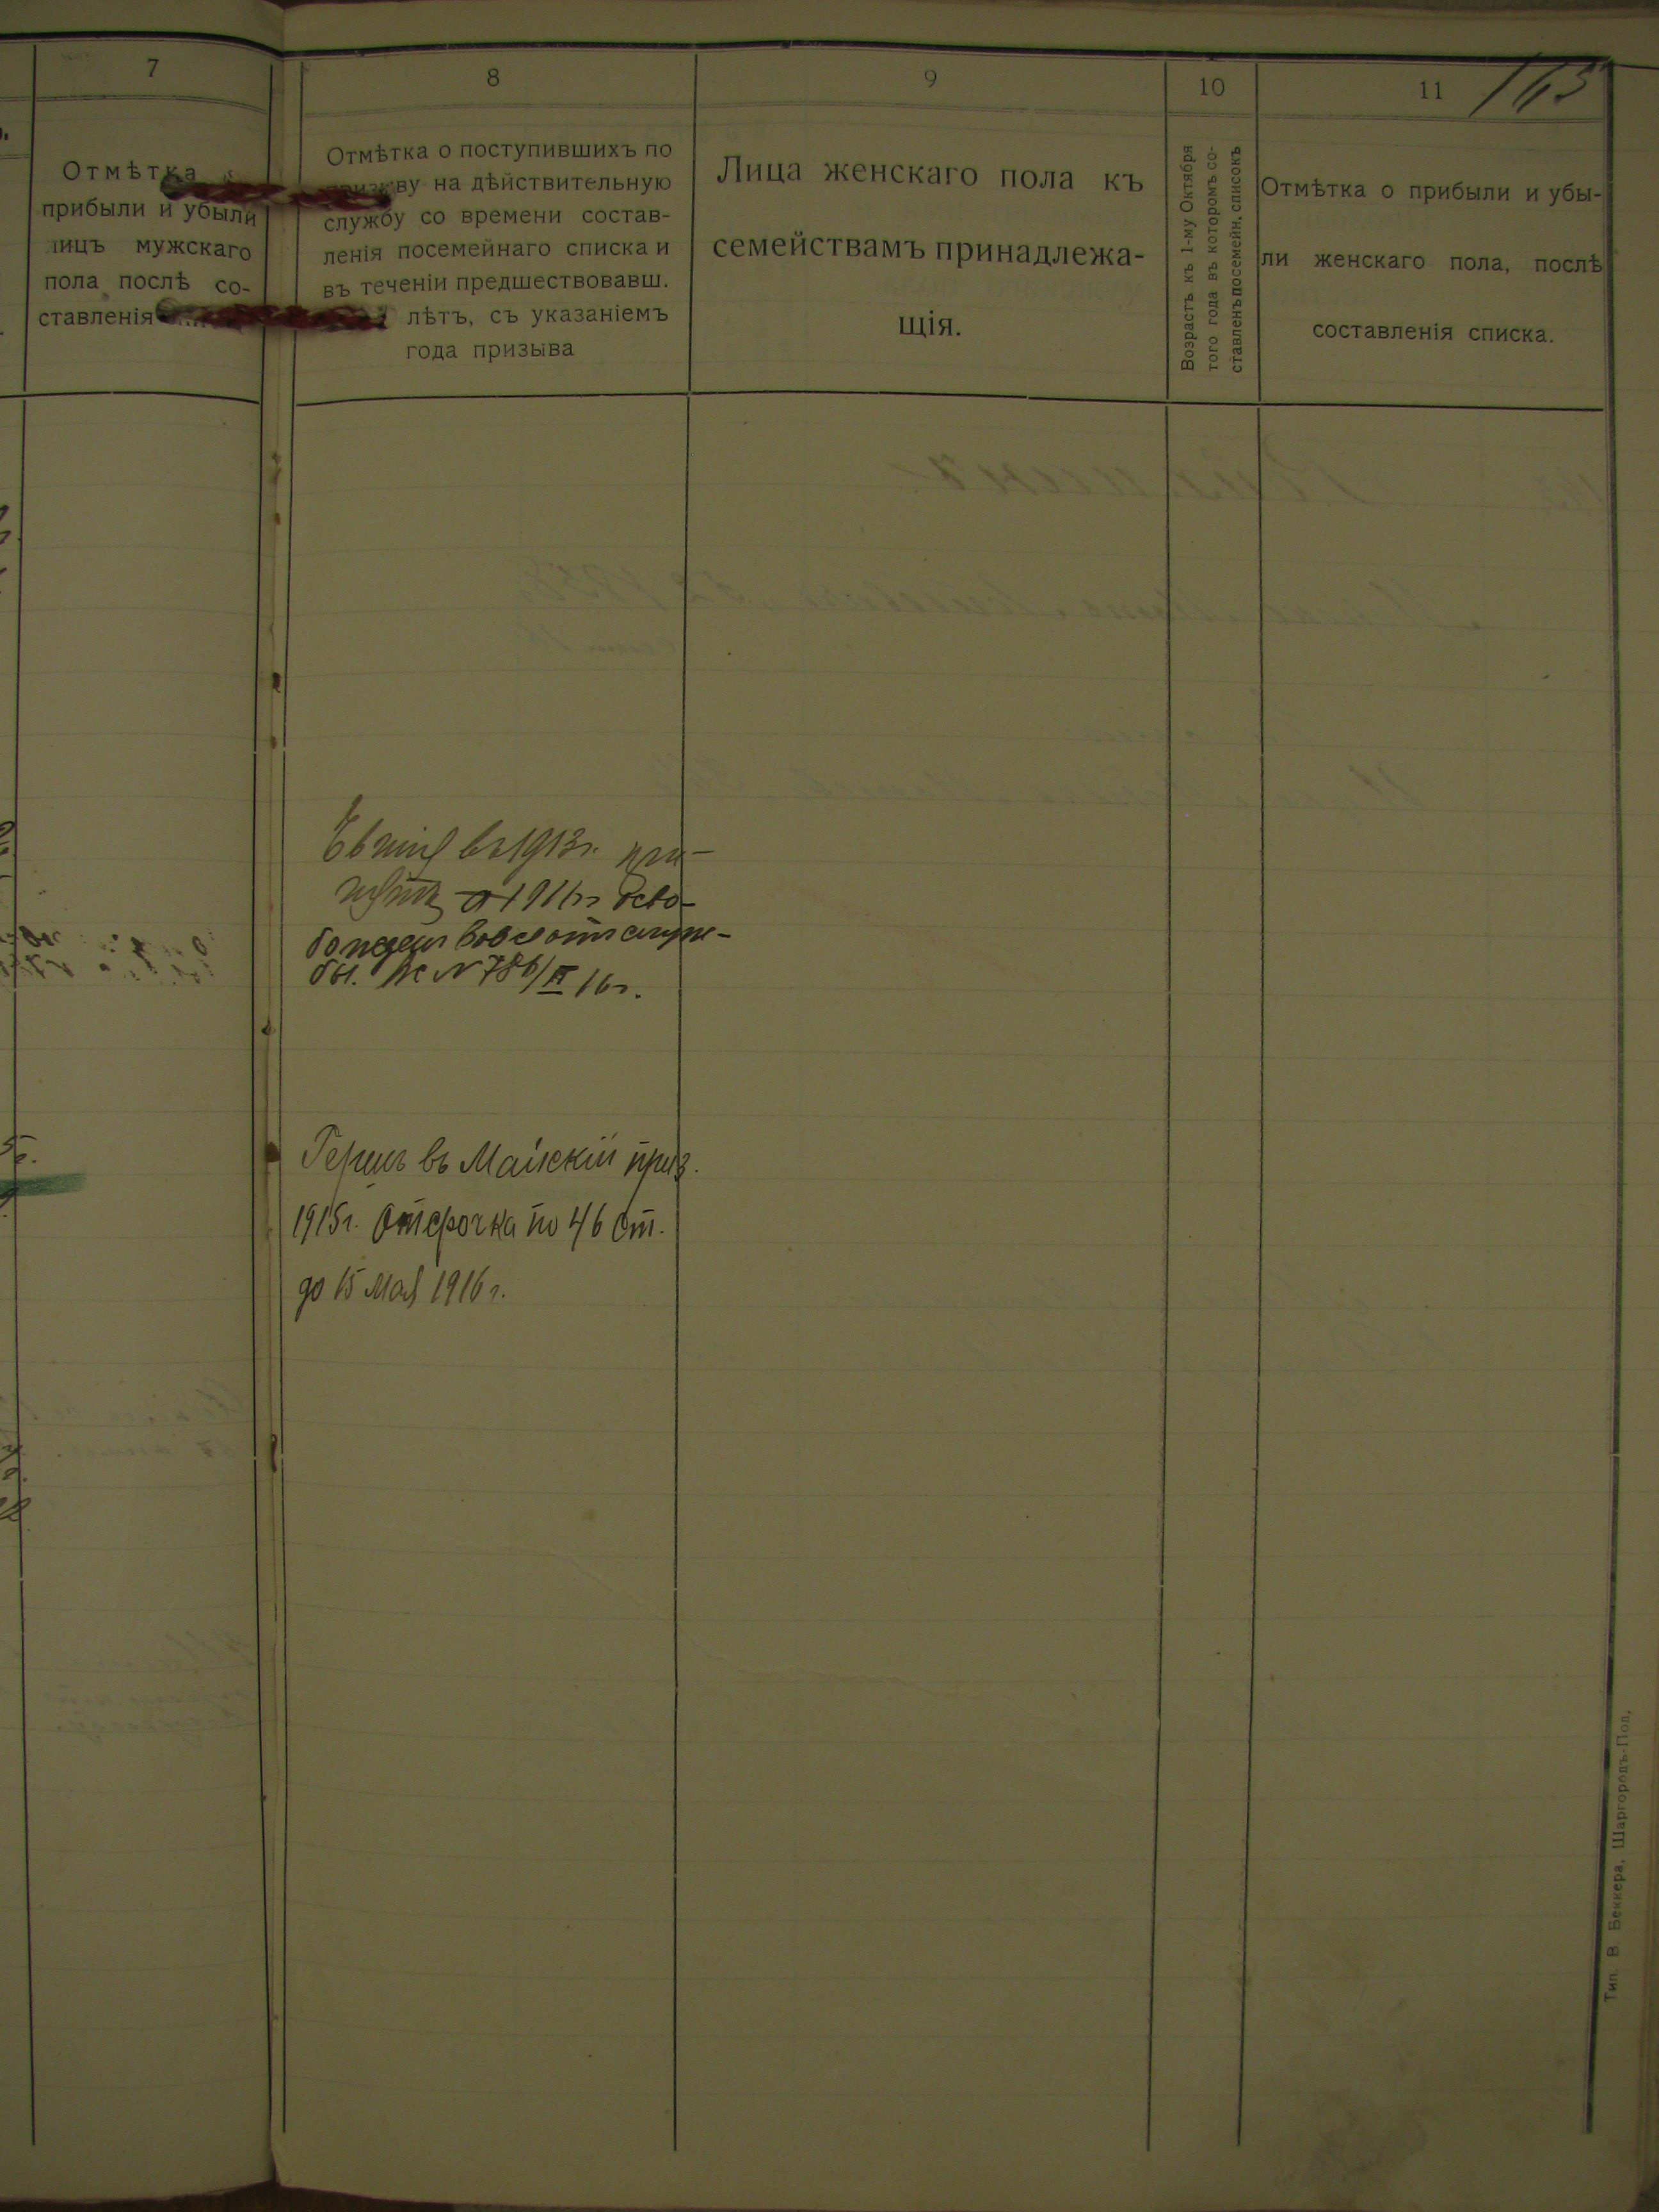 7
Отмѣтка
прибыли и убыли
лицъ мужскаго
пола послѣ со-
ставленія
8
Отмѣтка о поступившихъ по
призыву на дѣйствительную
службу со времени состав-
ленія посемейнаго списка и
въ теченіи предшествовавш.
лѣтъ, съ указаніемъ
года призыва
9
Лица женскаго пола къ
семействамъ принадлежа-
щія.
10
Возрастъ къ 1-му Октября
того года въ которомъ со-
ставленъ посемейн. списокъ
11
165
Отмѣтка о прибыли и убы-
ли женскаго пола, послѣ
составленія списка.
въ 1913г. при-
1916г осво-
божденъ вовсе отъ служ-
бы. № 786/II 16г.
Гершъ въ Майскій приз.
1915г. Отсрочка по 46 ст.
до 15 Мая 1916 г.
Тип. В. Беккера, Шаргородъ-Под,